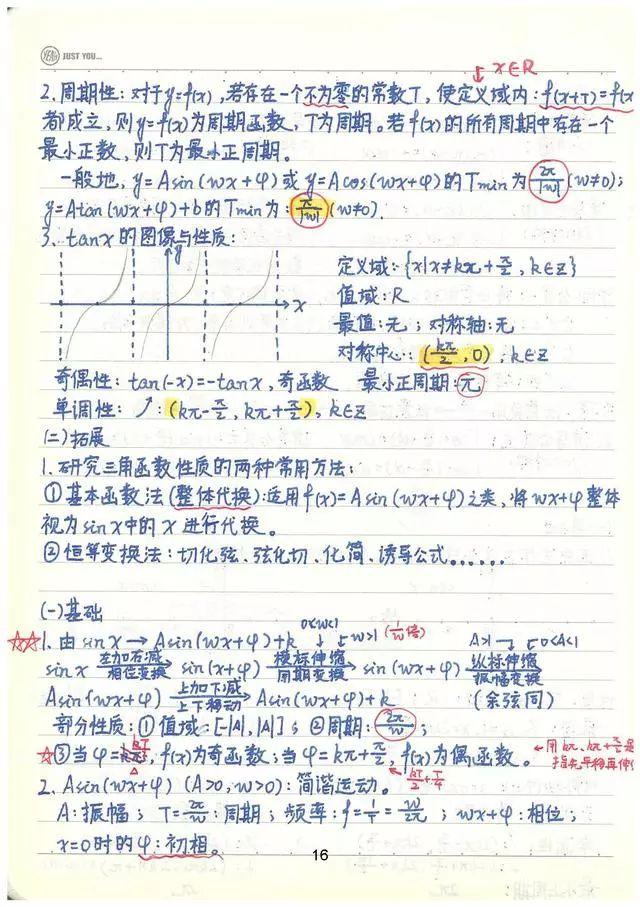 JUST YOU...
x∈R
2.周期性:对于y=f(x),若存在一个不为零的常数T,使定义域内:f(x+T)=f(x
都成立,则y=f(x)为周期函数,T为周期。若f(x)的所有周期中存在一个
最小正数,则T为最小正周期。
一般地,y=Asin(wx+φ)或y=Acos(wx+φ)的Tmin为2π/|w|(w≠0);
y=Atan(wx+φ)+b的Tmin为:π/|w|(w≠0).
3.tanx的图像与性质:
y
x
定义域:{x|x≠kπ+π/2,k∈Z}
值域:R
最值:无;对称轴:无
对称中心:(kπ/2,0),k∈Z
奇偶性:tan(-x)=-tanx,奇函数 最小正周期:π
单调性:↗(kπ-π/2,kπ+π/2),k∈Z
(二)拓展
1.研究三角函数性质的两种常用方法:
①基本函数法(整体代换):运用f(x)=Asin(wx+φ)之类,将wx+φ整体
视为sinx中的x进行代换。
②恒等变换法:切化弦、弦化切、化简、诱导公式......
(一)基础
☆☆1.由sinx→Asin(wx+φ)+k 0<w<1 w>1(1/w倍) A>1 0<A<1
sinx 左加右减 相位变换 sin(x+φ) 横标伸缩 周期变换 sin(wx+φ) 纵标伸缩 振幅变换
Asin(wx+φ) 上加下减 上下移动 Asin(wx+φ)+k (余弦同)
部分性质:①值域:[-|A|,|A|];②周期:2π/w;
☆③当φ=kπ,f(x)为奇函数;当φ=kπ+π/2,f(x)为偶函数。←用kπ、kπ+π/2是
kT/2 kT/2+T/4
2.Asin(wx+φ)(A>0,w>0):简谐运动。
A:振幅;T=2π/w:周期;频率:f=1/T=w/2π;wx+φ:相位;
x=0时的φ:初相。
16